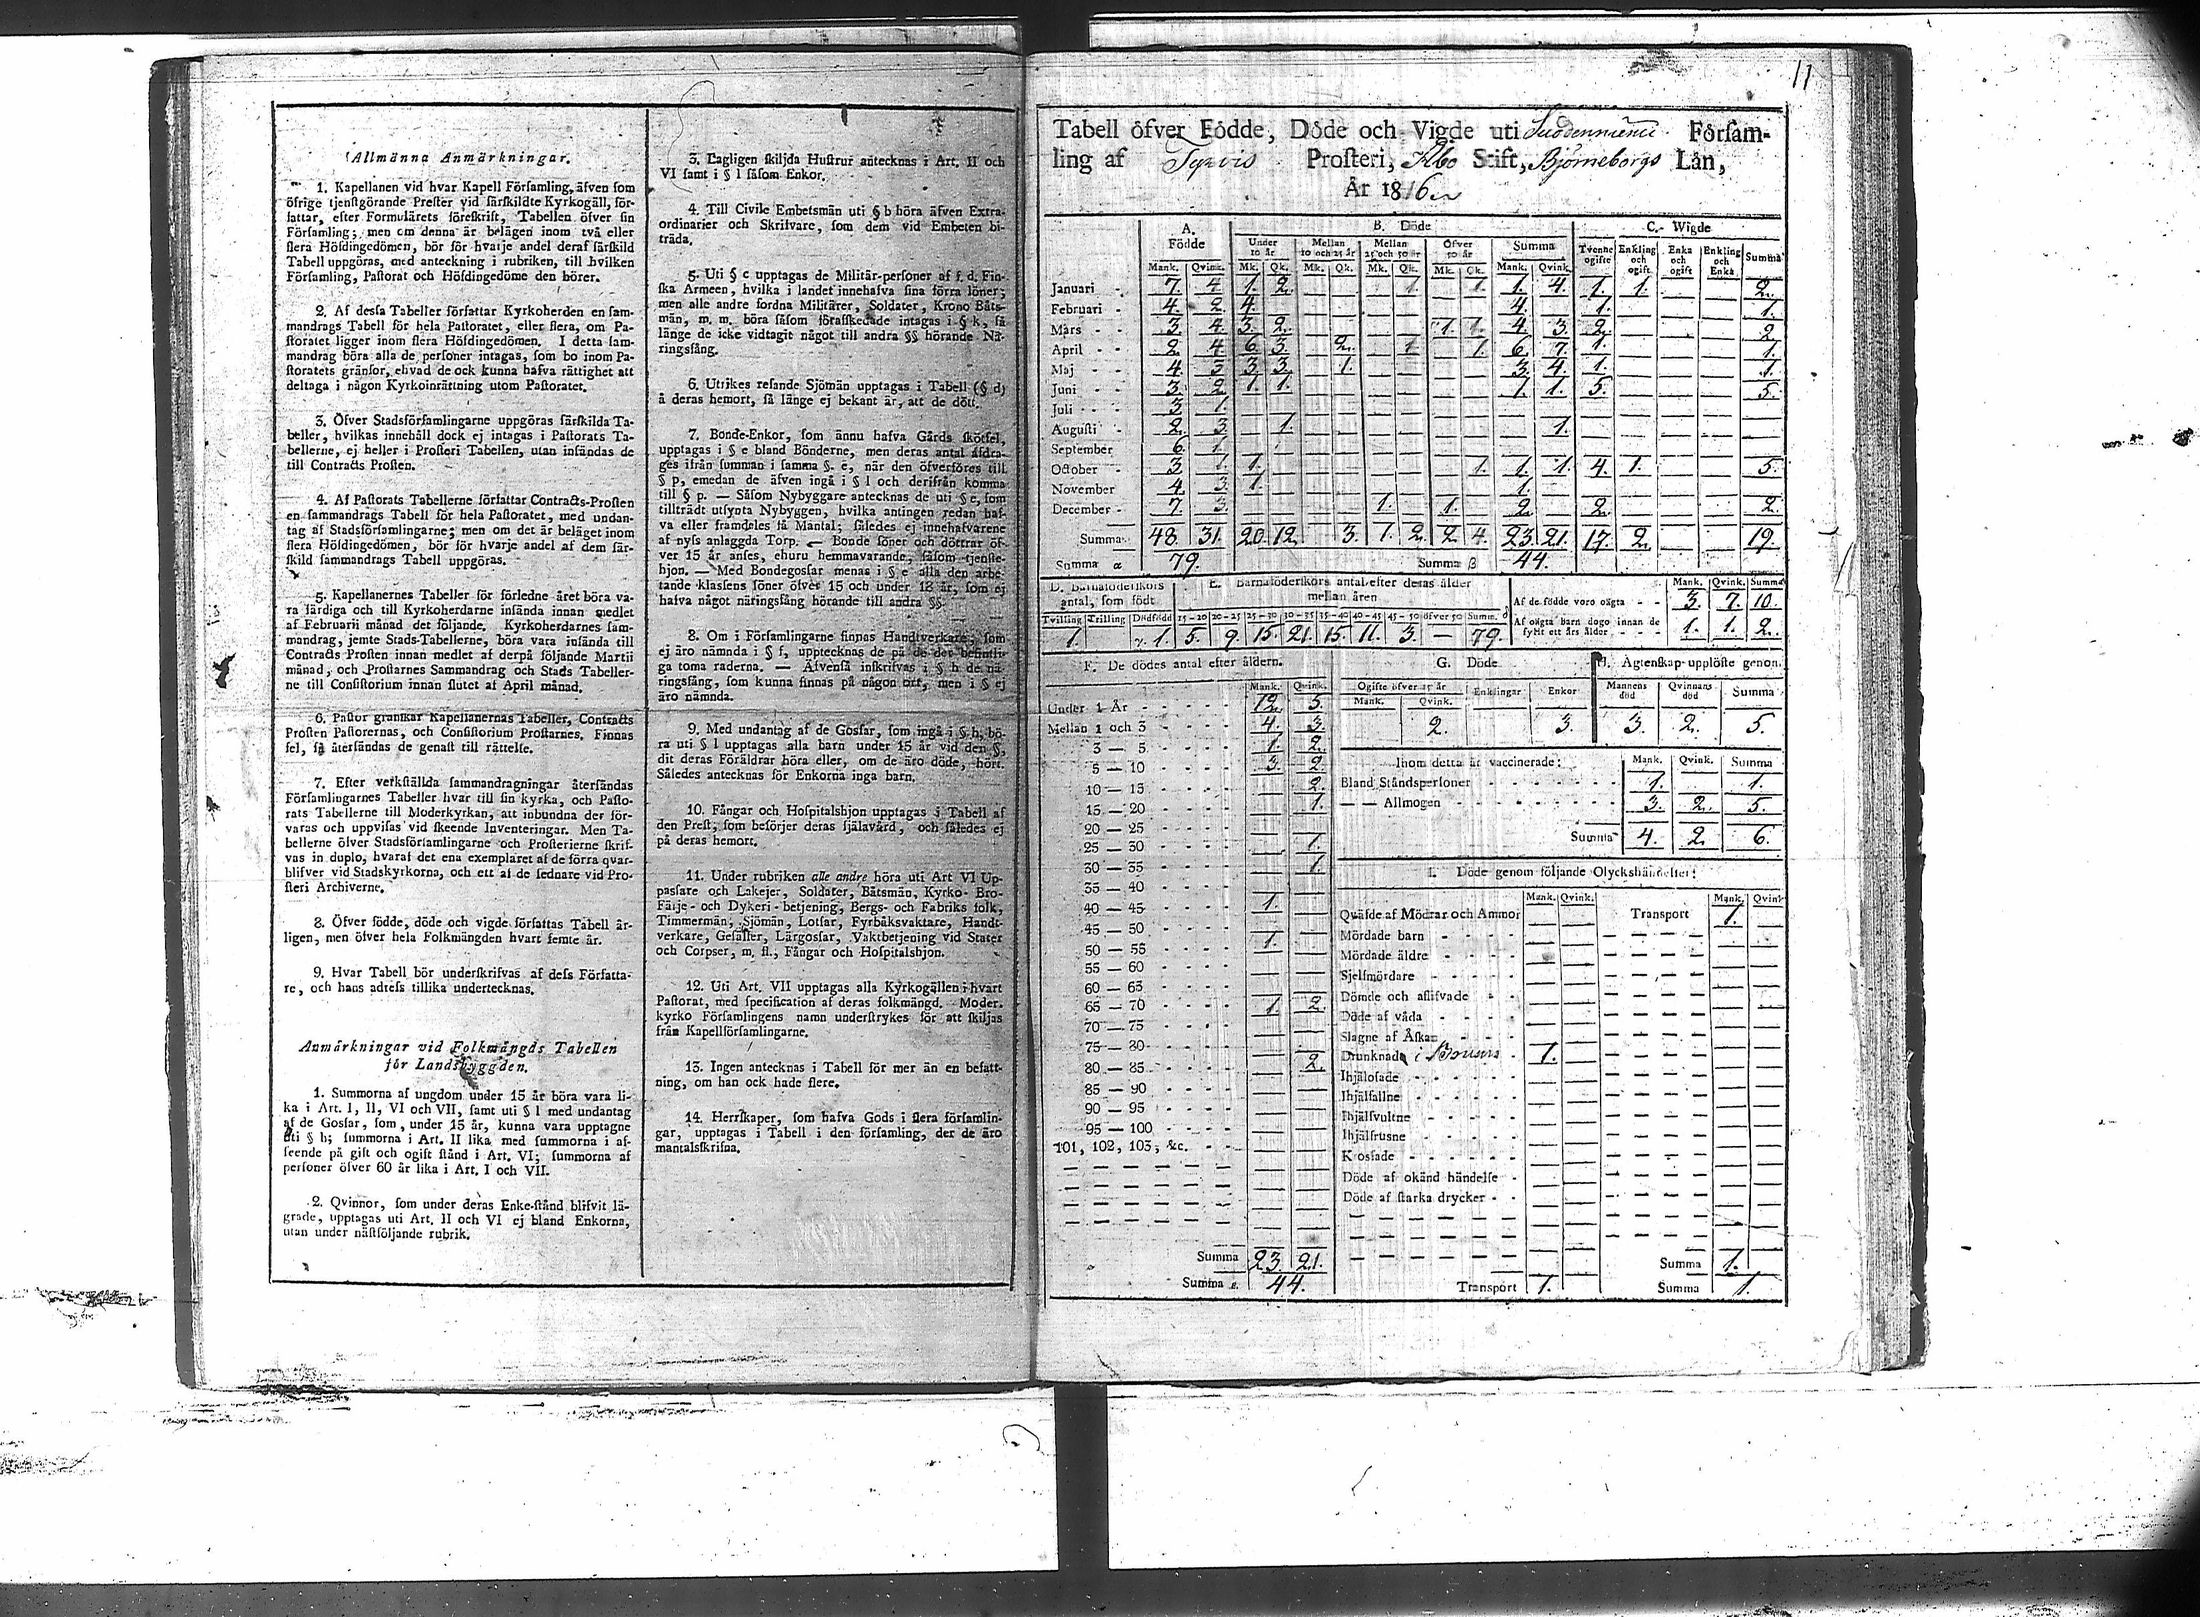 Allmänna Anmärkningar.
1. Kapellanen vid hvar Kapell Församling, äfven som
öfrige tjenstgörande Prester vid särskildte Kyrkogäll, för-
fattar, efter Formulärets föreskrift, Tabellen öfver sin
Församling; men om denna är belägen inom två eller
flera Höfdingedömen, bör för hvarje andel deraf särskild
Tabell uppgöras, med anteckning i rubriken, till hvilken
Församling, Pastorat och Höfdingedöme den hörer.
2. Af dessa Tabeller författar Kyrkoherden en sam-
mandrags Tabell för hela Pastoratet, eller flera, om Pa-
storatet ligger inom flera Höfdingedömen. I detta sam-
mandrag böra alla de personer intagas, som bo inom Pa-
storatets gränsor, ehvad de ock kunna hafva rättighet att
deltaga i någon Kyrkoinrättning utom Pastoratet.
3. Öfver Stadsförsamlingarne uppgöras särskilda Ta-
beller, hvilkas innehåll dock ej intagas i Pastorats Ta-
bellerne, ej heller i Prosteri Tabellen, utan insändas de
till Contracts Prosten.
4. Af Pastorats Tabellerne författar Contracts-Prosten
en sammandrags Tabell för hela Pastoratet, med undan-
tag af Stadsförsamlingarne; men om det är beläget inom
flera Höfdingedömen, bör för hvarje andel af dem sär-
skild sammandrags Tabell uppgöras.
5. Kapellanernes Tabeller för förledne året böra va-
ra färdiga och till Kyrkoherdarne insända innan medlet
af Februarii månad det följande. Kyrkoherdarnes sam-
mandrag, jemte Stads-Tabellerne, böra vara insända till
Contracts Prosten innan medlet af derpå följande Martii
månad, och Prostarnes Sammandrag och Stads Tabeller-
ne till Consistorium innan slutet af April månad.
6. Pastor granskar Kapellanernas Tabeller, Contracts
Prosten Pastorernas, och Consistorium Prostarnes. Finnas
fel, så återsändas de genast till rättelse.
7. Efter verkställda sammandragningar återsändas
Församlingarnes Tabeller hvar till sin kyrka, och Pasto-
rats Tabellerne till Moderkyrkan, att inbundna der för-
varas och uppvisas vid skeende Inventeringar. Men Ta-
bellerne öfver Stadsförsamlingarne och Prosterierne skrif-
vas in duplo, hvaraf det ena exemplaret af de förra qvar-
blifver vid Stadskyrkorna, och ett af de sednare vid Pro-
steri Archiverne.
8. Öfver födde, döde och vigde författas Tabell år-
ligen, men öfver hela Folkmängden hvart femte år.
9. Hvar Tabell bör underskrifvas af dess Författa-
re, och hans adress tillika undertecknas.
Anmärkningar vid Folkmängds Tabellen
för Landsbyggden.
1. Summorna af ungdom under 15 år böra vara li-
ka i Art. I, II, VI och VII, samt uti § l med undantag
af de Gossar, som, under 15 år, kunna vara upptagne
uti § h; summorna i Art. II lika med summorna i af-
seende på gift och ogift stånd i Art. VI; summorna af
personer öfver 60 år lika i Art. I och VII.
2. Qvinnor, som under deras Enke-stånd blifvit lä-
grade, upptagas uti Art. II och VI ej bland Enkorna,
utan under nästföljande rubrik.
3. Lagligen skiljda Hustrur antecknas i Art. II och
VI samt i § l såsom Enkor.
4. Till Civile Embetsmän uti § b höra äfven Extra-
ordinarier och Skrifvare, som dem vid Embeten bi-
träda.
5. Uti § c upptagas de Militär-personer af f. d. Fin-
ska Armeen, hvilka i landet innehafva sina förra löner;
men alle andre fordna Militärer, Soldater, Krono Båts-
män, m. m. böra såsom förafskedade intagas i § k, så
länge de icke vidtagit något till andra §§ hörande Nä-
ringsfång.
6. Utrikes resande Sjömän upptagas i Tabell (§ d)
å deras hemort, så länge ej bekant är, att de dött.
7. Bonde-Enkor, som ännu hafva Gårds skötsel,
upptagas i § e bland Bönderne, men deras antal afdra-
ges ifrån summan i samma §. e, när den öfverföres till
§ p, emedan de äfven ingå i § l och derifrån komma
till § p. — Såsom Nybyggare antecknas de uti § e, som
tillträdt utsynta Nybyggen, hvilka antingen redan haf-
va eller framdeles få Mantal; således ej innehafvarene
af nyss anlaggda Torp. — Bonde söner och döttrar öf-
ver 15 år anses, ehuru hemmavarande, såsom tjenste-
hjon. — Med Bondegossar menas i § e alla den arbe-
tande klassens söner öfver 15 och under 18 år, som ej
hafva något näringsfång hörande till andra §§.
8. Om i Församlingarne finnas Handtverkare, som
ej äro nämnda i § f, upptecknas de på de der befintli-
ga toma raderna. — Äfvenså inskrifvas i § h de nä-
ringsfång, som kunna finnas på någon ort, men i § ej
äro nämnda.
9. Med undantag af de Gossar, som ingå i § h, bö-
ra uti § l upptagas alla barn under 15 år vid den §,
dit deras Föräldrar höra eller, om de äro döde, hört.
Således antecknas för Enkorna inga barn.
10. Fångar och Hospitalshjon upptagas i Tabell af
den Prest, som besörjer deras själavård, och således ej
på deras hemort.
11. Under rubriken alle andre höra uti Art VI Up-
passare och Lakejer, Soldater, Båtsmän, Kyrko- Bro-
Färje- och Dykeri-betjening, Bergs- och Fabriks folk,
Timmermän, Sjömän, Lotsar, Fyrbåksvaktare, Handt-
verkare, Gesäller, Lärgossar, Vaktbetjening vid Stater
och Corpser, m. fl., Fångar och Hospitalshjon.
12. Uti Art. VII upptagas alla Kyrkogällen i hvart
Pastorat, med specification af deras folkmängd. Moder-
kyrko Församlingens namn understrykes för att skiljas
från Kapellförsamlingarne.
13. Ingen antecknas i Tabell för mer än en befatt-
ning, om han ock hade flere.
14. Herrskaper, som hafva Gods i flera församlin-
gar, upptagas i Tabell i den församling, der de äro
mantalsskrifna.
11
Tabell öfver Födde, Döde och Vigde uti Suodenniemi Försam-
ling af Tyrvis Prosteri, Åbo Stift, Björneborgs Län,
År 1816
A. Födde B. Döde C. Wigde
Under 10 år Mellan 10 och 25 år Mellan 25 och 50 år Öfver 50 år Summa Tvenne ogifte Enkling och ogift Enka och ogift Enkling och Enka Summa
Mank. Qvink. Mk. Qk. Mk. Qk. Mk. Qk. Mk. Qk. Mank. Qvink.
Januari 7. 4 1. 2. — — — 1. — 1. 1. 4. 1. 1. — — 2.
Februari 4. 2. 4. — — — — — — — 4. — 1. — — — 1.
Mars 3. 4. 3. 2. — — — — 1. 1. 4. 3. 2. — — — 2.
April 2. 4 6. 3. — 2. — 1. — 1. 6. 7. 1. — — — 1.
Maj 4. 3 3. 3. — 1. — — — — 3. 4. 1. — — — 1.
Juni 3. 2. 1. 1. — — — — — — 1. 1. 5. — — — 5.
Juli 3. 1. — — — — — — — — — — — — — — —
Augusti 2. 3. — 1. — — — — — — — 1. — — — — —
September 6. 1. — — — — — — — — — — — — — — —
October 3. 1. 1. — — — — — — 1. 1. 1. 4. 1. — — 5.
November 4. 3. 1. — — — — — — — 1. — — — — — —
December 7. 3. — — — — 1. — 1. — 2. — 2. — — — 2.
Summa 48 31. 20. 12. — 3. 1. 2. 2. 4. 23. 21. 17. 2. — — 19.
Summa α 79. Summa β 44.
D. Barnaföderskors antal, som födt E. Barnaföderskors antal efter deras ålder mellan åren
Tvilling Trilling Dödfödd 15-20 20-25 25-30 30-35 35-40 40-45 45-50 öfver 50 Summ.
1. 1. 5. 9. 15. 21. 15. 11. 3. — 79.
Mank. Qvink. Summa
Af de födde voro oägta 3. 7. 10.
Af oägta barn dogo innan de fyllt ett års ålder 1. 1. 2.
F. De dödes antal efter åldern.
Mank. Qvink.
Under 1 År 12. 5.
Mellan 1 och 3 4. 3.
3 — 5 1. 2.
5 — 10 3. 2.
10 — 15 2.
15 — 20 1.
20 — 25
25 — 30 1.
30 — 35 1.
35 — 40
40 — 45 1.
45 — 50
50 — 55 1.
55 — 60
60 — 65
65 — 70 1. 2.
70 — 75
75 — 80
80 — 85 2.
85 — 90
90 — 95
95 — 100
101, 102, 103, &c.
Summa 23. 21.
Summa 44.
G. Döde
Ogifte öfver 15 år Enklingar Enkor
Mank. Qvink.
2. 3.
H. Ägtenskap upplöste genom
Mannens död Qvinnans död Summa
3. 2. 5.
Inom detta år vaccinerade: Mank. Qvink. Summa
Bland Ståndspersoner 1. 1.
— — Allmogen 3. 2. 5.
Summa 4. 2. 6.
I. Döde genom följande Olyckshändelser:
Mank. Qvink. Mank. Qvink
Qväfde af Mödrar och Ammor Transport 1.
Mördade barn
Mördade äldre
Sjelfmördare
Dömde och aflifvade
Döde af våda
Slagne af Åskan
Drunknade i 1.
Ihjälosade
Ihjälfallne
Ihjälsvultne
Ihjälfrusne
Krossade
Döde af okänd händelse
Döde af starka drycker
Summa 1.
Transport 1. Summa 1.